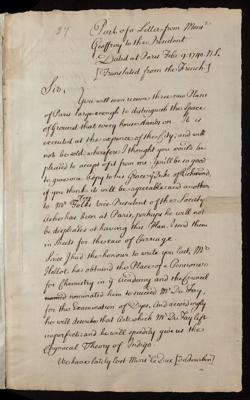 27
Part of a Letter from Monsr.
Geoffroy to the President
Dated at Paris Feb. 9. 1740. N.S.
[Translated from the French]
Sir,
You will soon receive three new Plans
of Paris large enough to distinguish the Space
of Ground that every house stands on. It is
executed at the expence of the City, and will
not be sold: wherefore I thought you would be
pleased to accept of it from me. I will be so good
to give one Copy to his Grace the Duke of Richmond,
if you think it will be agreeable: and another
to Mr. Folkes, Vice-President of the Society.
As he has been at Paris, perhaps he will not
be displeased at having this Plan. I send them
in Sheets for the ease of Carriage
Since I had the honour to write you last, Mr.
Hellot has obtained the Place of a Pensioner
for Chemistry in ye Academy and the Council
nominated him to succeed Mr. Du Fay,
for the Examination of Dyes. And accordingly
he will describe that Art which Mr. Du Fay left
imperfect: and he will speedily give us the
Chymical Theory of Indigo.
We have lately lost Monsr. Le Duc [De Bourbon]